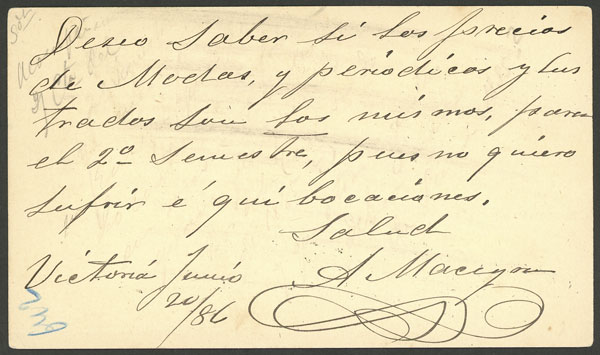 Deseo saber si los precios
de Modas, y periódicos y lus
trados son los mismos, para
el 2º Semestre, pues no quiero
sufrir é quibocaciones.
Salud
Victoria Junio
20/86
A